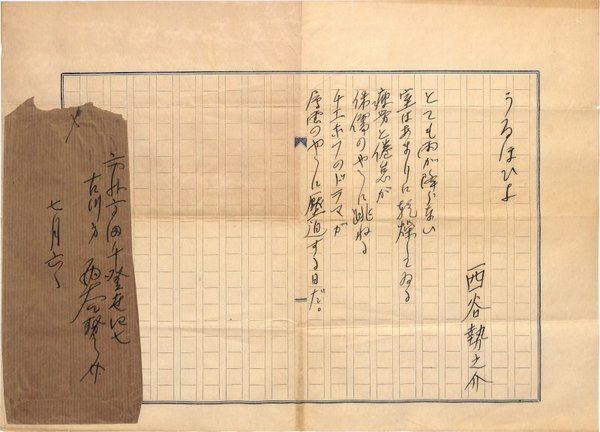 うるほひよ
西谷勢之介
とても雨が降らない
室はあまりに乾燥してゐる
疲労と倦怠が
侏儒のやうに跳ねる
チエホフのドラマが
層雲のやうに圧迫する日だ。
市外
千登世
古川方
西谷勢之介
七月六日